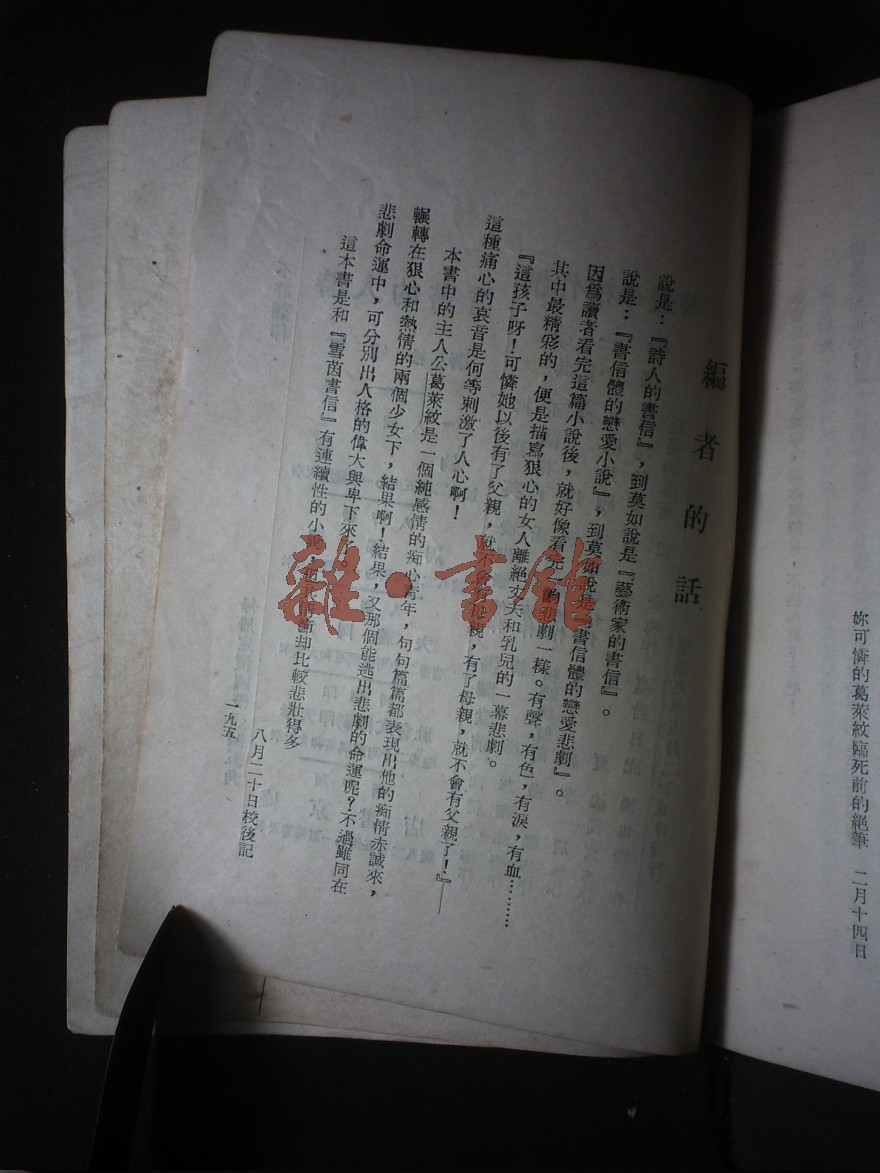 妳可憐的葛萊紋臨死前的絕筆 二月十四日
編者的話
說是：『詩人的書信』，到莫如說是『藝術家的書信』。
說是：『書信體的戀愛小說』，到莫如說是『書信體的戀愛悲劇』。
因爲讀者看完這篇小說後，就好像看完 的悲劇一樣。有聲，有色，有淚，有血………
其中最精彩的，便是描寫狠心的女人離絕丈夫和乳兒的一幕悲劇。
『這孩子呀！可憐她以後有了父親，就不 母親，有了母親，就不會有父親了！』——
這種痛心的哀音是何等刺激了人心啊！
本書中的主人公葛萊紋是一個純感情的痴心青年，句句篇篇都表現出他的痴情赤誠來，
輾轉在狠心和熱情的兩個少女下，結果啊！結果，又那個能逃出悲劇的命運呢？不過雖同在
悲劇命運中，可分別出人格的偉大與卑下來了。
這本書是和『雪茵書信』有連續性的小說， 節却比較悲壯得多
一九五
八月二十日校後記
雜·書館